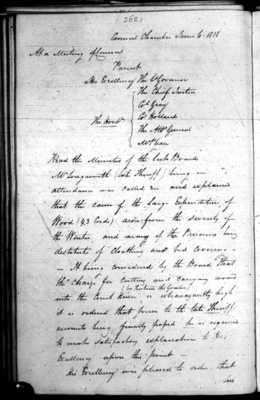 (262)
Council Chamber June 6. 1818
At a Meeting of Council
Present
His Excellency The Lt Governor
The Chief Justice
Col Gray
Col Holland
The Honble
The Atty General
Mr
Read the Minutes of the last Board
Mr Longworth (late Sheriff) being in
attendance was called in and explained
that the cause of the Large Expenditure of
Wood (43 Cords) arose from the severity of
the Winter and many of the Prisoners being
destitute of Cloathing and bed Covering —
— It being considered by the Board that
the Charge for Cutting and Carrying wood
into the Court House is extravagantly high
it is ordered that previous to the late Sheriffs
accounts being finally passed he is required
to make satisfactory explanation to His
Excellency upon this point —
His Excellency was pleased to order that